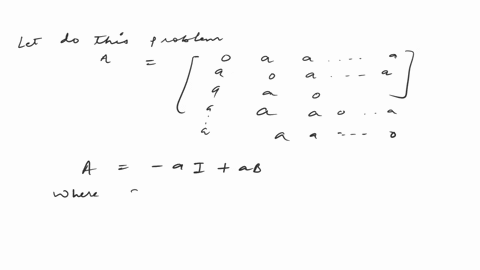 Let do this problem
A = [ 0 a a .... a
a 0 a --- a
a a 0 ]
a a a 0 .. a
: a a a --- 0
A = - a I + a B
where